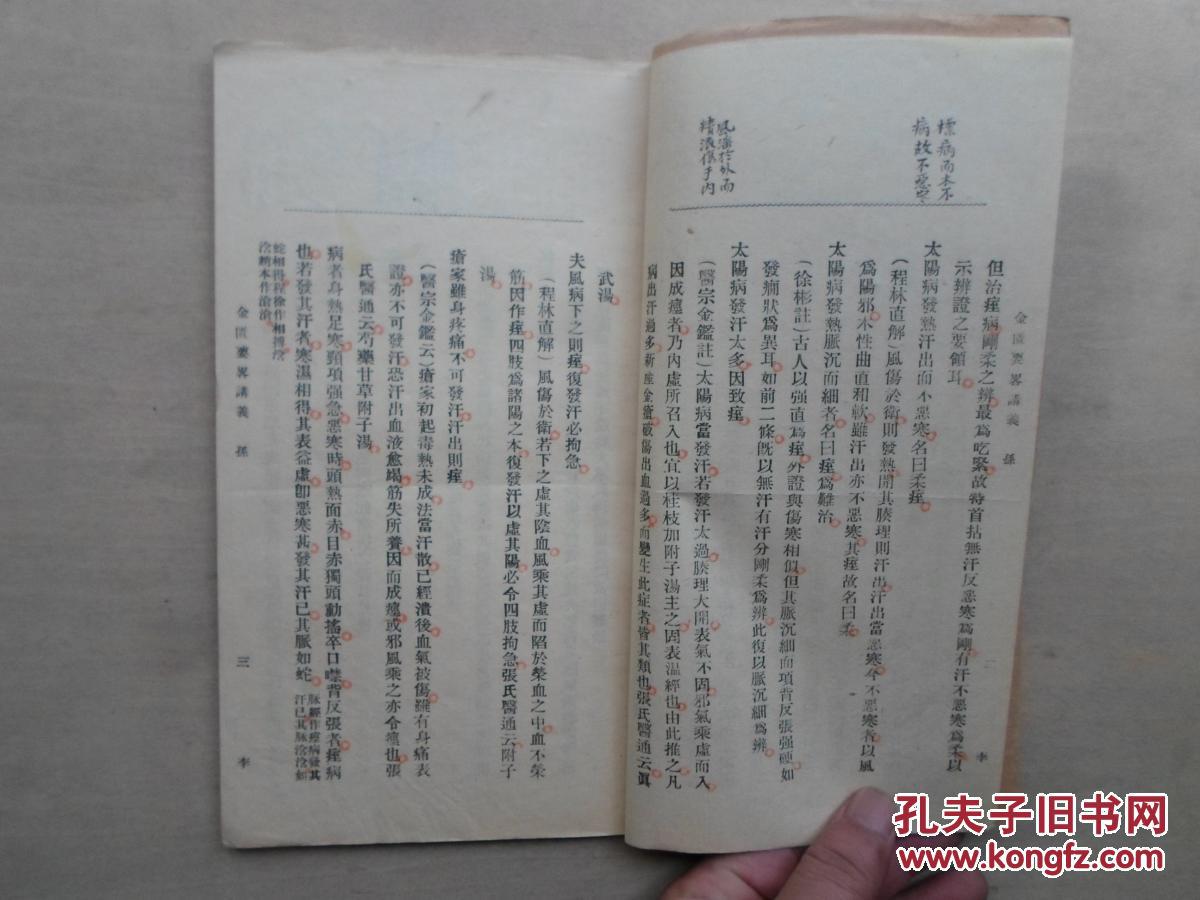 標病而本不
病故不惡寒
風瘍於外而
津液傷于內
金匱要畧講義 孫 二 李
但治痓病剛柔之辨最爲吃緊故特首拈無汗反惡寒爲剛有汗不惡寒爲柔以
示辨證之要領耳
太陽病發熱汗出而不惡寒名曰柔痓
(程林直解)風傷於衛則發熱開其腠理則汗出汗出當惡寒今不惡寒者以風
爲陽邪木性曲直和軟雖汗出亦不惡寒其痓故名曰柔
太陽病發熱脈沉而細者名曰痓爲難治
(徐彬註)古人以强直爲痓外證與傷寒相似但其脈沉細面項背反張强硬如
發癎狀爲異耳如前二條旣以無汗有汗分剛柔爲辨此復以脈沉細爲辨
太陽病發汗太多因致痓
(醫宗金鑑註)太陽病當發汗若發汗太過腠理大開表氣不固邪氣乘虛而入
因成痙者乃內虛所召入也宜以桂枝加附子湯主之固表温經也由此推之凡
病出汗過多新產金瘡破傷出血過多而變生此症者皆其類也張氏醫通云眞
武湯
夫風病下之則痓復發汗必拘急
(程林直解)風傷於衛若下之虛其陰血風乘其虛而陷於榮血之中血不榮
筋因作痓四肢爲諸陽之本復發汗以虛其陽必令四肢拘急張氏醫通云附子
湯
瘡家雖身疼痛不可發汗汗出則痓
(醫宗金鑑云)瘡家初起毒熱未成法當汗散已經潰後血氣被傷雖有身痛表
證亦不可發汗恐汗出血液愈竭筋失所養因而成痙或邪風乘之亦令痙也張
氏醫通云芍藥甘草附子湯
病者身熱足寒頸項强急惡寒時頭熱面赤目赤獨頭動搖卒口噤背反張者痓病
也若發其汗者寒濕相得其表益虛卽惡寒甚發其汗已其脈如蛇
脉經作痓病發其
汗已其脉浛浛如
蛇相得程徐作相搏浛
浛趙本作滄滄
金匱要畧講義 孫 三 李
孔夫子旧书网
www.kongfz.com